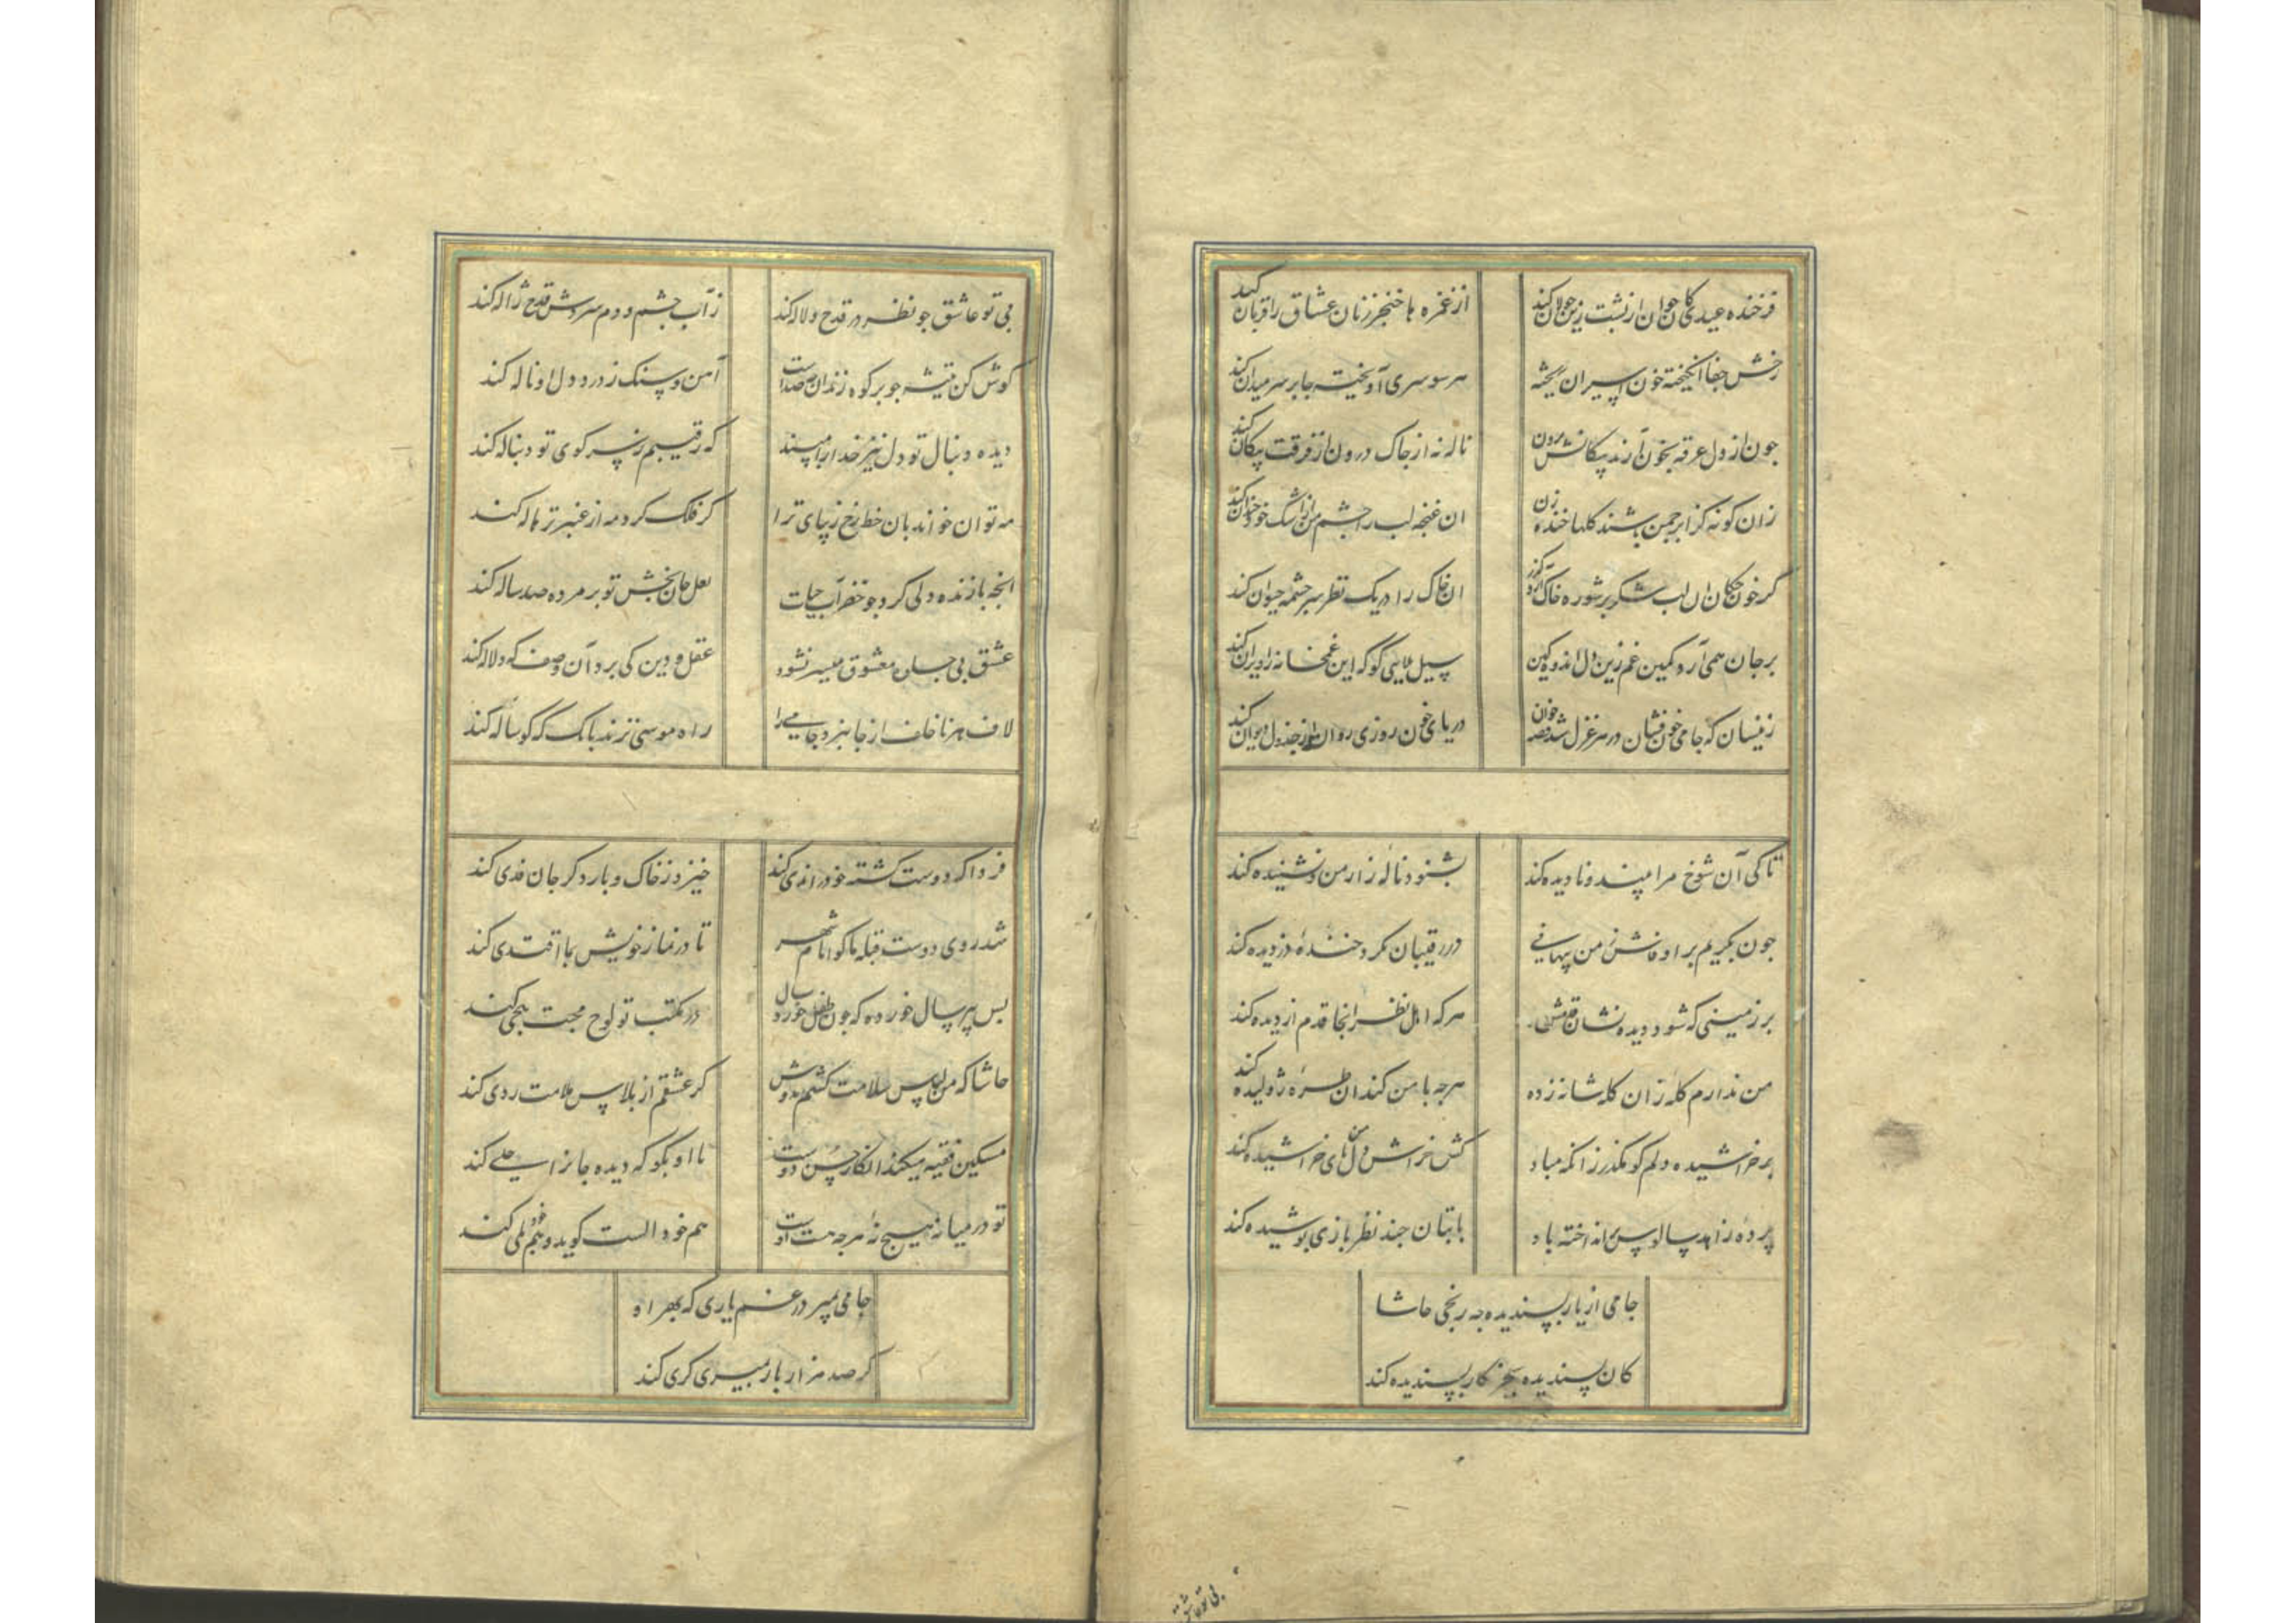 فرخنده عیدی کان جوان از پشت زین جولان کند از غمزه ها خنجر زنان عشاق را قربان کند
رخش جفا انکیخته خون اسیران ریخته هر سو سری آویخته جا بر سر میدان کند
جون از دل غرقه بخون آرند پیکانش برون ناله نه از جاک درون از فرقت پیکان کند
زان کونه کز ابر جمن باشند کلها خنده زن ان غنجه لب را جشم من از اشک خود خندان کند
کر خون جکان ان لب شکر بر شوره خاک آرد کذر ان خاک را در یک نظر سرجشمه حیوان کند
بر جان همی آرد کمین غم زین دل اندوهکین سیل بلایی کو که این غمخانه را ویران کند
زینسان که جامی خون فشان در هر غزل شد قصه خوان دریای خون روزی روان از جدول دیوان کند
تا کی آن شوخ مرا بیند و نادیده کند بشنود ناله زار من و نشنیده کند
جون بکریم بر او فاش من پنهانی در رقیبان نکرد خنده دزدیده کند
بر زمینی که شود دیده نشان قدمش هر که اهل نظر انجا قدم از دیده کند
من ندارم کله زان کاکل شانه زده هرجه با من کند ان طره ژولیده کند
بر خراشیده دلم کو مکذر زانکه مباد کش خراش دل های خراشیده کند
پرده زاهد سالوس بر انداخته باد با بتان جند نظربازی پوشیده کند
جامی از یار پسندیده جه رنجی حاشا
کان پسندیده بجز کار پسندیده کند
بی تو عاشق
بی تو عاشق جو نظر در قدح و لاله کند ز آب جشم و دم سردش قدح ژاله کند
کوش کن تیشه جو بر کوه زند ان صداست آهن و سنک ز درد دل او ناله کند
دیده دنبال تو دل نیز خدا را مپسند که رقیبم ز سر کوی تو دنباله کند
مه توان خواند بان خط رخ زیبای ترا کر فلک کرد مه از عنبر تر هاله کند
انجه با زنده دلی کرد جو خضر آب حیات لعل جان بخش تو بر مرده صد ساله کند
عشق بی جسان معشوق میسر نشود عقل و دین کی برد آن وصف که دلاله کند
لاف هر ناخلف از جا نبرد جامی را راه موسی نزند بانک که کوساله کند
فردا که دوست کشته خود را ندی کند خیزد ز خاک و بار دکر جان فدی کند
شد روی دوست قبله ما کو امام شهر تا در نماز خویش بما اقتدی کند
بس پیر سال خورده که جون طفل خورد سال در مکتب تو لوح محبت هجی کند
حاشا که من لباس سلامت کشم بدوش کر عشقم از پلاس ملامت ردی کند
مسکین فقیه میکند انکار حسن دوست با او بکو که دیده جانرا جلی کند
تو در میانه هیج نه هرجه هست اوست هم خود الست کوید و هم خود بلی کند
جامی بمیر در غم یاری که بهر او
کر صد هزار بار بمیری کری کند